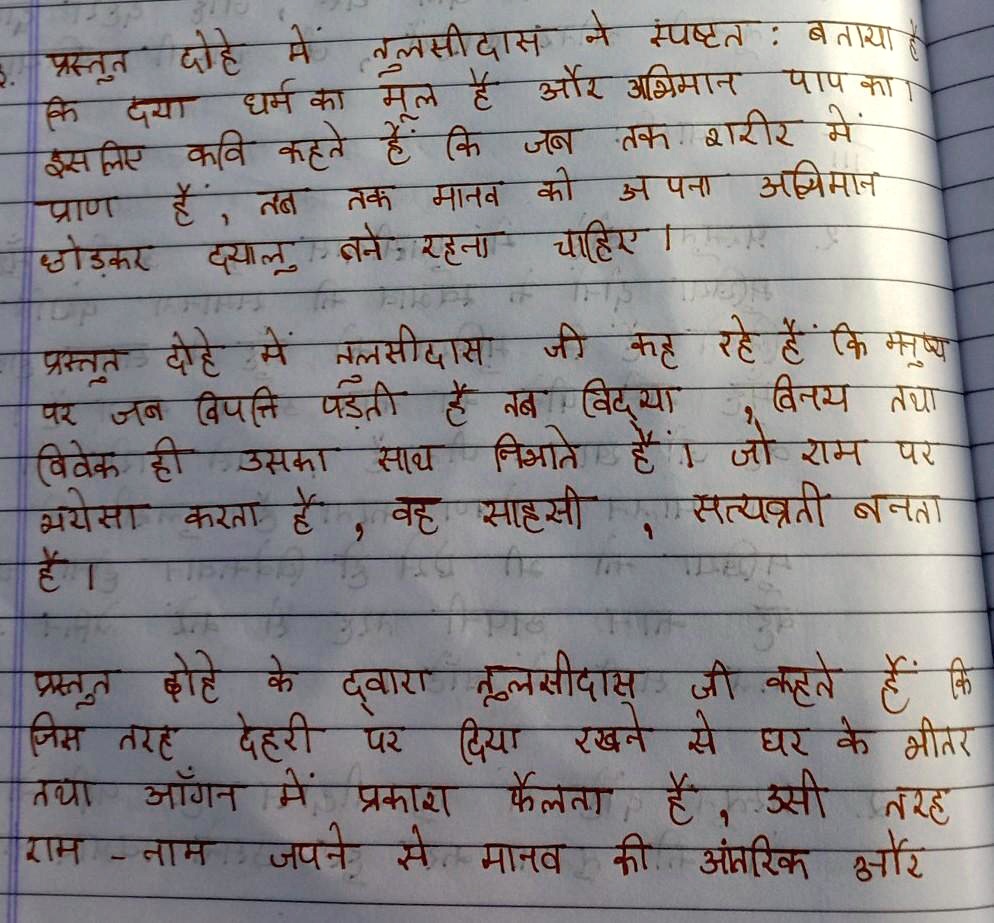 प्रस्तुत दोहे में तुलसीदास ने स्पष्टत : बताया है
कि दया धर्म का मूल है और अभिमान पाप का ।
इसलिए कवि कहते हैं कि जब तक शरीर में
प्राण हैं , तब तक मानव को अपना अभिमान
छोड़कर दयालु बने रहना चाहिए ।
प्रस्तुत दोहे में तुलसीदास जी कह रहे हैं कि मनुष्य
पर जब विपत्ति पड़ती है तब विद्या , विनय तथा
विवेक ही उसका साथ निभाते हैं । जो राम पर
भरोसा करता है , वह साहसी , सत्यव्रती बनता
है ।
प्रस्तुत दोहे के द्वारा तुलसीदास जी कहते हैं कि
जिस तरह देहरी पर दिया रखने से घर के भीतर
तथा आँगन में प्रकाश फैलता है , उसी तरह
राम - नाम जपने से मानव की आंतरिक और